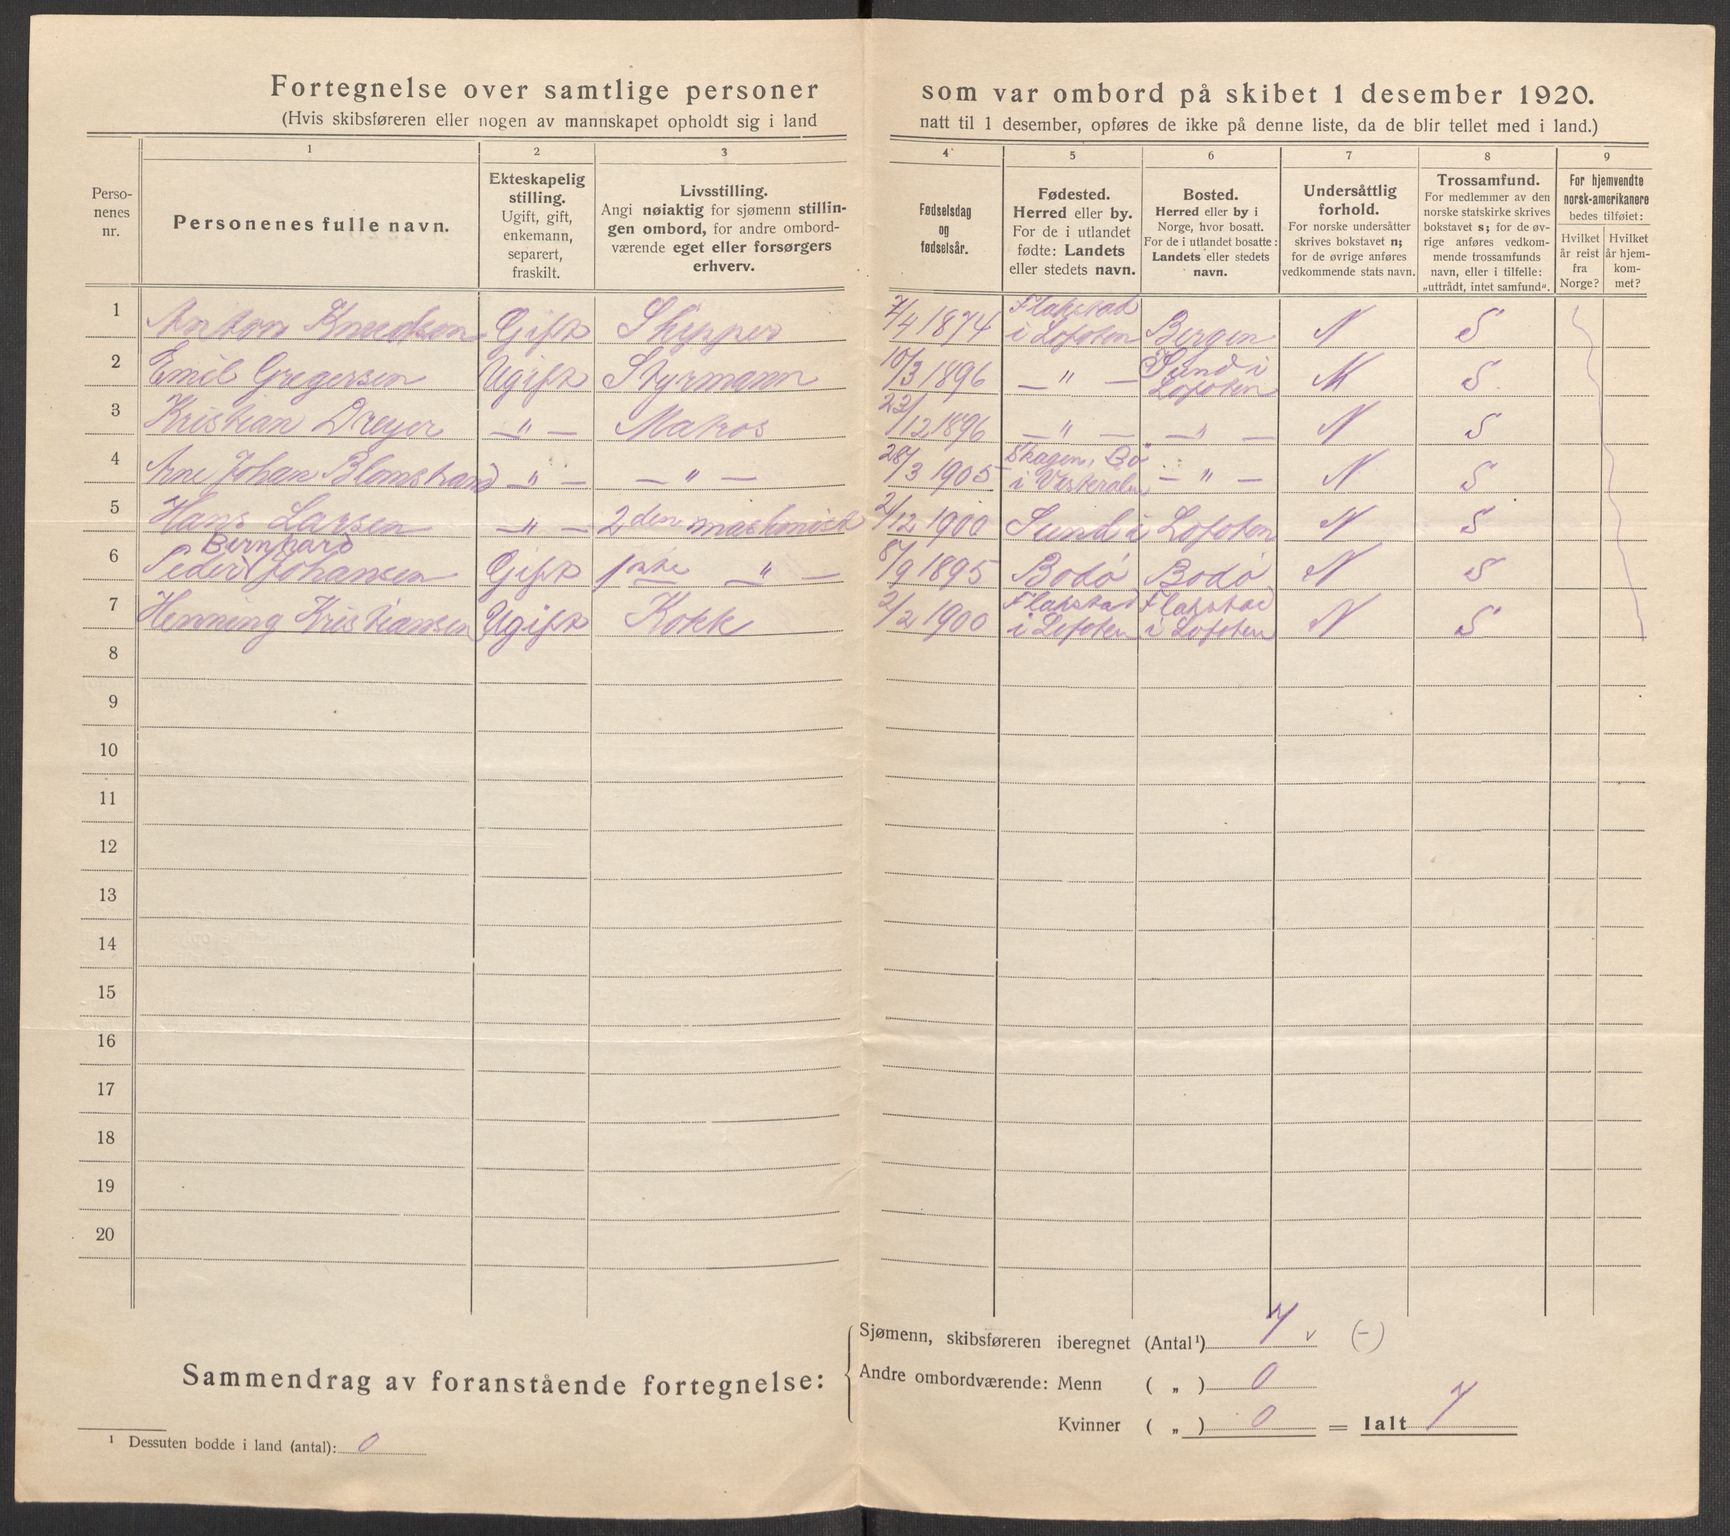 Fortegnelse over samtlige personer som var ombord på skibet 1 desember 1920.
(Hvis skibsføreren eller nogen av mannskapet opholdt sig i land natt til 1 desember, opføres de ikke på denne liste, da de blir tellet med i land.)
Personenes nr.
1
Personenes fulle navn.
2
Ekteskapelig stilling.
Ugift, gift, enkemann, separert, fraskilt.
3
Livsstilling.
Angi nøiaktig for sjømenn stillingen ombord, for andre ombordværende eget eller forsørgers erhverv.
4
Fødselsdag og fødselsår.
5
Fødested.
Herred eller by.
For de i utlandet fødte: Landets eller stedets navn.
6
Bosted.
Herred eller by i Norge, hvor bosatt.
For de i utlandet bosatte: Landets eller stedets navn.
7
Undersåttlig forhold.
For norske undersåtter skrives bokstavet n; for de øvrige anføres vedkommende stats navn.
8
Trossamfund.
For medlemmer av den norske statskirke skrives bokstavet s; for de øvrige anføres vedkommende trossamfunds navn, eller i tilfelle: „uttrådt, intet samfund".
9
For hjemvendte norsk-amerikanere bedes tilføiet:
Hvilket år reist fra Norge?
Hvilket år hjemkommet?
1 Anton Knudsen Gift Skipper 7/4 1874 Flakstad i Lofoten Bergen N S
2 Emil Gregersen Ugift Styrmann 10/3 1896 — " — Sund i Lofoten N S
3 Kristian Dreyer — " — Matros 22/12 1896 — " — — " — N S
4 Arne Johan Blomstrand — " — — " — 28/3 1905 Skagen, Bø i Vesterålen — " — N S
5 Hans Larsen — " — 2den maskinist 2/12 1900 Sund i Lofoten N S
6 Peder Bernhard Johansen Gift 1ste " — 8/9 1895 Bodø Bodø N S
7 Henning Kristiansen Ugift Kokk 2/2 1900 Flakstad i Lofoten Flakstad i Lofoten N S
8
9
10
11
12
13
14
15
16
17
18
19
20
Sammendrag av foranstående fortegnelse:
Sjømenn, skibsføreren iberegnet (Antal¹) 7 v (-)
Andre ombordværende: Menn ( „ ) 0
Kvinner ( „ ) 0 = Ialt 7
¹ Dessuten bodde i land (antal): 0